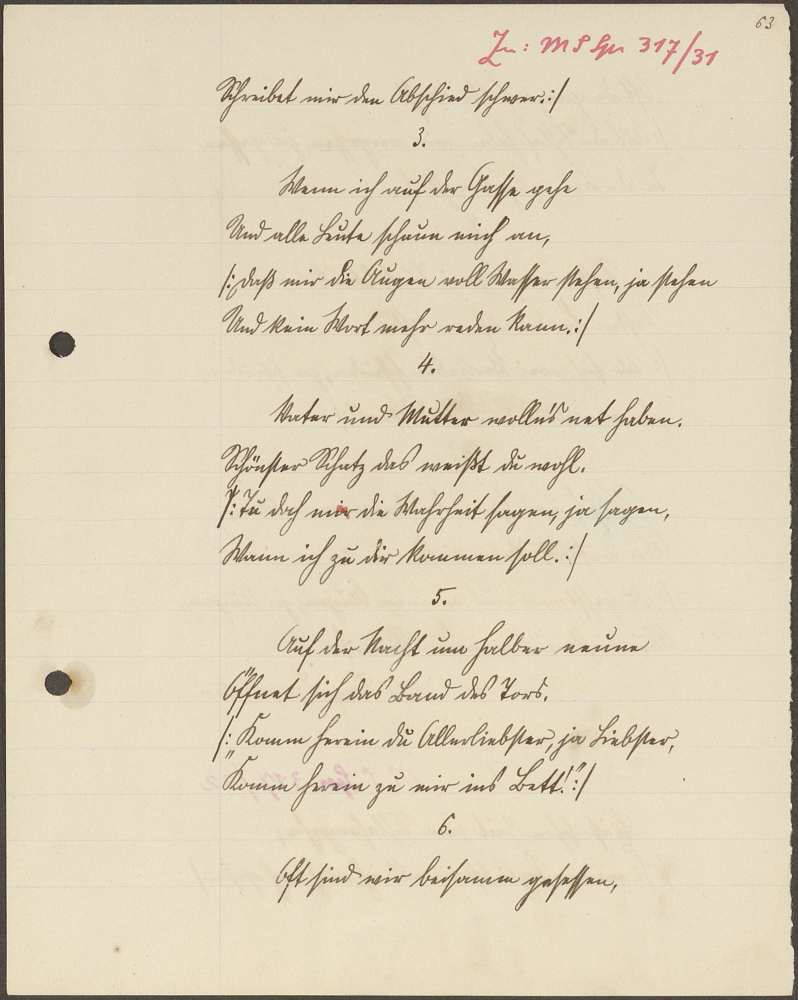 63
Zu: MS Spr 317/31
Schreibet mir den Abschied schwer.:/
3.
Wenn ich auf der Gasse gehe
Und alle Leute schaun mich an,
/: daß mir die Augen voll Wasser stehen, ja stehen
Und kein Wort mehr reden kann.:/
4.
Vater und Mutter wollns net haben.
Schönster Schatz das weißt du wohl.
/: Tu doch mir die Wahrheit sagen, ja sagen,
Wann ich zu dir kommen soll.:/
5.
Auf der Nacht um halber neune
Öffnet sich das Band des Tors.
/: Komm herein du Allerliebster, ja Liebster,
"Komm herein zu mir ins Bett!":/
6.
Oft sind wir beisamm gesessen,